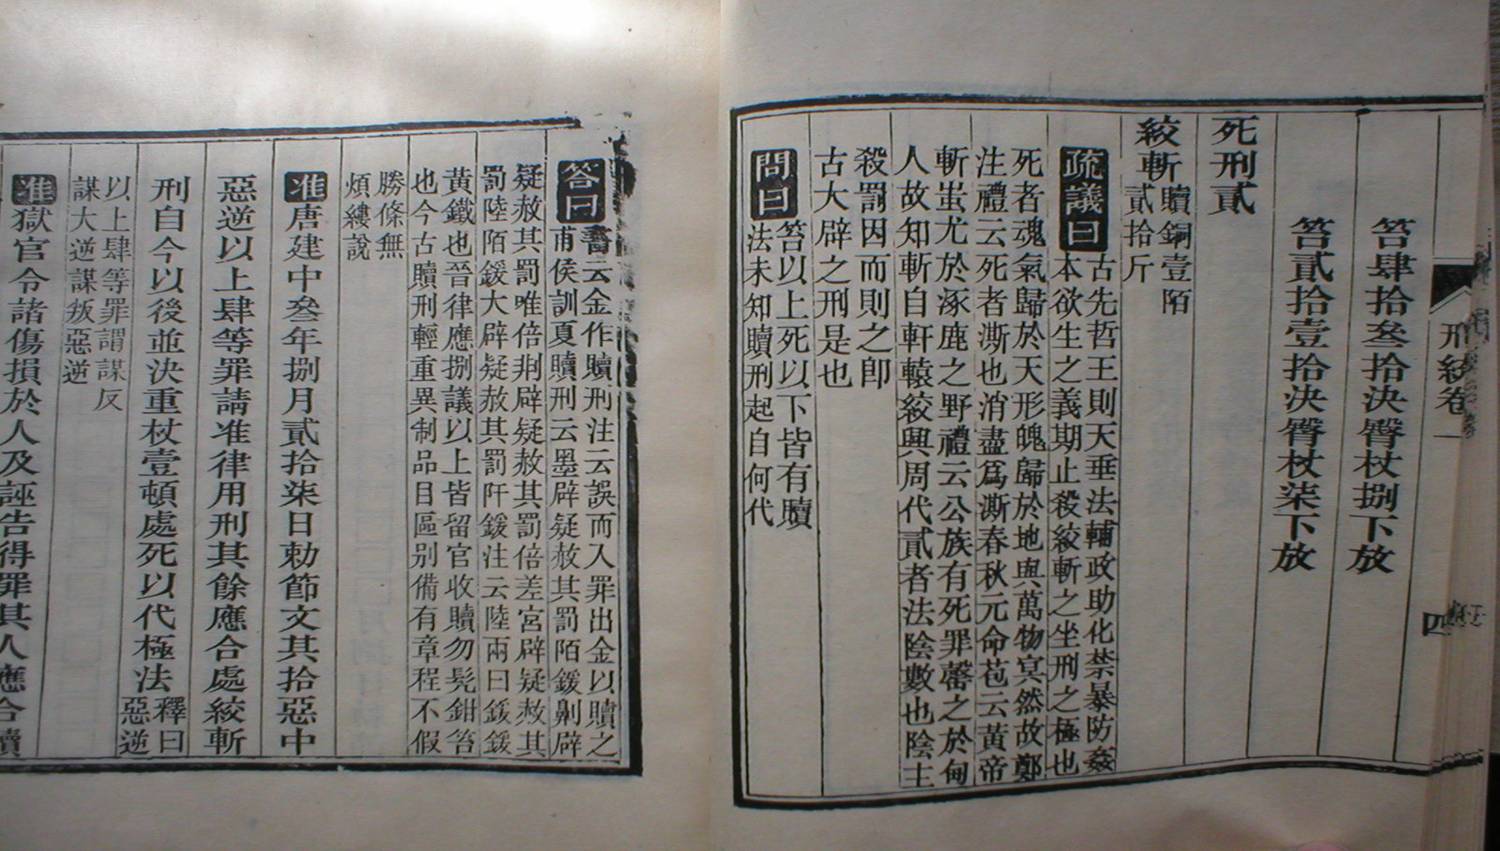 刑統卷一
四
笞肆拾叁拾決臀杖捌下放
笞貳拾壹拾決臀杖柒下放
死刑貳
絞斬
贖銅壹陌
貳拾斤
疏議曰
古先哲王則天垂法輔政助化禁暴防姦
本欲生之義期止殺絞斬之坐刑之極也
死者魂氣歸於天形魄歸於地與萬物冥然故鄭
注禮云死者澌也消盡爲澌春秋元命苞云黃帝
斬蚩尤於涿鹿之野禮云公族有死罪罄之於甸
人故知斬自軒轅絞興周代貳者法陰數也陰主
殺罰因而則之即
古大辟之刑是也
問曰
笞以上死以下皆有贖
法未知贖刑起自何代
答曰
書云金作贖刑注云誤而入罪出金以贖之
甫侯訓夏贖刑云墨辟疑赦其罰陌鍰劓辟
疑赦其罰唯倍剕辟疑赦其罰倍差宮辟疑赦其
罰陸陌鍰大辟疑赦其罰阡鍰注云陸兩曰鍰鍰
黃鐵也晉律應捌議以上皆留官收贖勿髡鉗笞
也今古贖刑輕重異制品目區别備有章程不假
勝條無
煩縷說
准唐建中叁年捌月貳拾柒日勅節文其拾惡中
惡逆以上肆等罪請准律用刑其餘應合處絞斬
刑自今以後並決重杖壹頓處死以代極法
釋曰
惡逆
以上肆等罪謂謀反
謀大逆謀叛惡逆
准獄官令諸傷損於人及誣告得罪其人應合贖